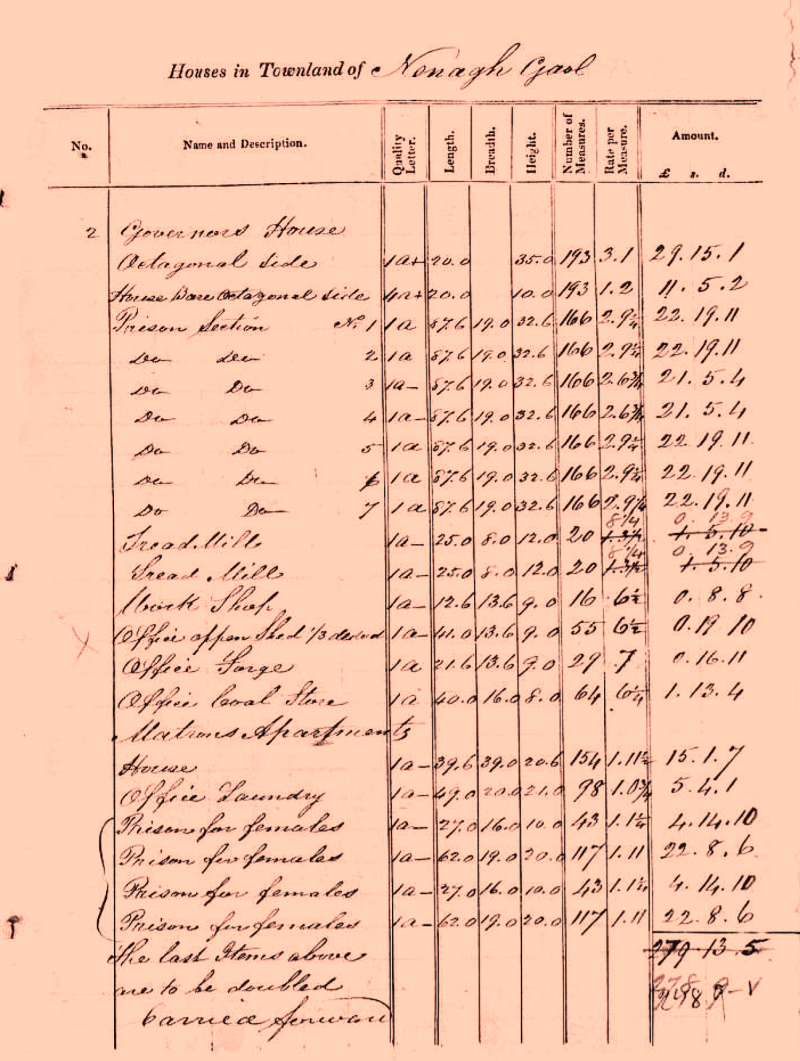 Houses in Townland of Nenagh Gaol
No. Name and Description. Quality Letter. Length. Breadth. Height. Number of Measures. Rate per Measure. Amount.
£ s. d.
2 Governors House
Octagonal Side 1a+ 20.0 35.0 193 3.1 29.15.1
House Base Octagonal Side 4a+ 20.0 10.0 193 1.2 11.5.2
Prison Section No 1 1a 87.6 19.0 32.6 166 2.9¼ 22.19.11
Do Do 2 1a 87.6 19.0 32.6 166 2.9¼ 22.19.11
Do Do 3 1a- 87.6 19.0 32.6 166 2.6¾ 21.5.4
Do Do 4 1a- 87.6 19.0 32.6 166 2.6¾ 21.5.4
Do Do 5 1a 87.6 19.0 32.6 166 2.9¼ 22.19.11
Do Do 6 1a 87.6 19.0 32.6 166 2.9¼ 22.19.11
Do Do 7 1a 87.6 19.0 32.6 166 2.9¼ 22.19.11
8¼ 0.13.9
Tread Mill 1a- 25.0 8.0 12.0 20 1.3½ 1.5.10
8¼ 0.13.9
Tread Mill 1a- 25.0 8.0 12.0 20 1.3½ 1.5.10
Work Shop 1a- 12.6 13.6 9.0 16 6½ 0.8.8
Office open Shed 1/3 deducd 1a- 41.0 13.6 9.0 55 6½ 0.19.10
Office Forge 1a 21.6 13.6 9.0 29 .7 0.16.11
Office Coal Store 1a 40.0 16.0 8.0 64 6¼ 1.13.4
Matrons Apartments
House 1a- 39.6 39.0 20.6 154 1.11½ 15.1.7
Office Laundry 1a- 49.0 20.0 21.0 98 1.0¾ 5.4.1
Prison for females 1a- 27.0 16.0 10.0 43 1.1¼ 4.14.10
Prison for females 1a- 62.0 19.0 20.0 117 1.11 22.8.6
Prison for females 1a- 27.0 16.0 10.0 43 1.1¼ 4.14.10
Prison for females 1a- 62.0 19.0 20.0 117 1.11 22.8.6
The last Items above 279.13.5
are to be doubled
Carried forward